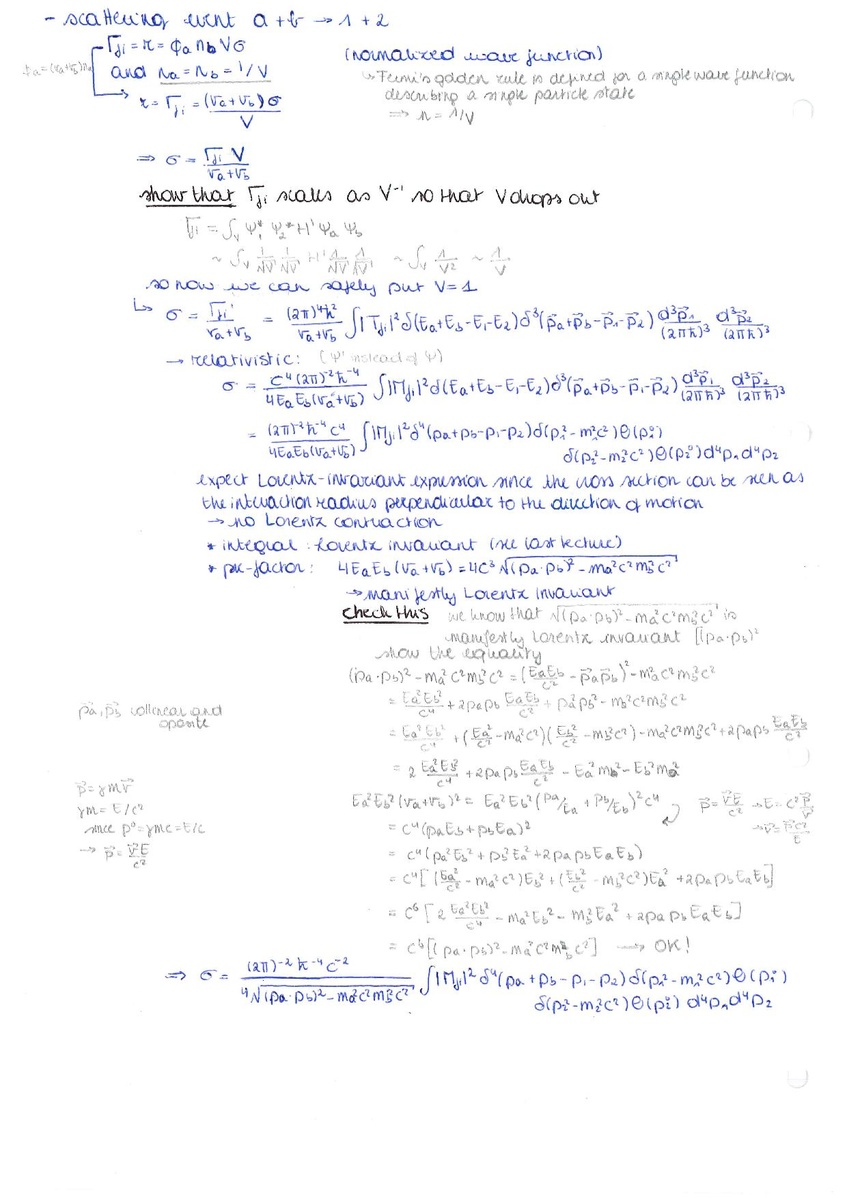 - scattering event a + b → 1 + 2
Γji = r = ϕa nb V σ (normalized wave function)
and na = nb = 1/V ↳ Fermi's golden rule is defined for a single wave function
describing a single particle state
→ r = Γji = (va + vb)σ / V ⇒ n = 1/V
⇒ σ = Γji V / (va + vb)
show that Γji scales as V⁻¹ so that V drops out
Γji = ∫V ψ1* ψ2* H' ψa ψb
~ ∫V 1/√V 1/√V H' 1/√V 1/√V ~ ∫V 1/V² ~ 1/V
so now we can safely put V = 1
↳ σ = Γji / (va + vb) = (2π)⁴ħ² / (va + vb) ∫|Tji|² δ(Ea + Eb - E1 - E2) δ³(p⃗a + p⃗b - p⃗1 - p⃗2) d³p⃗1/(2πħ)³ d³p⃗2/(2πħ)³
→ relativistic: (ψ' instead of ψ)
σ = c⁴(2π)⁻²ħ⁻⁴ / 4EaEb(va + vb) ∫|Mji|² δ(Ea + Eb - E1 - E2) δ³(p⃗a + p⃗b - p⃗1 - p⃗2) d³p⃗1/(2πħ)³ d³p⃗2/(2πħ)³
= (2π)⁻²ħ⁻⁴c⁴ / 4EaEb(va + vb) ∫|Mji|² δ⁴(pa + pb - p1 - p2) δ(p1² - m1²c²) Θ(p1⁰)
δ(p2² - m2²c²) Θ(p2⁰) d⁴p1 d⁴p2
expect Lorentz-invariant expression since the cross section can be seen as
the interaction radius perpendicular to the direction of motion
→ no Lorentz contraction
* integral : Lorentz invariant (see last lecture)
* pre-factor: 4EaEb(va + vb) = 4c³ √((pa·pb)² - ma²c²mb²c²)
→ manifestly Lorentz invariant
check this we know that √((pa·pb)² - ma²c²mb²c²) is
manifestly Lorentz invariant [(pa·pb)²
show the equality
(pa·pb)² - ma²c²mb²c² = (EaEb/c² - p⃗a p⃗b)² - ma²c²mb²c²
p⃗a, p⃗b collinear and
opposite
= Ea²Eb²/c⁴ + 2papb EaEb/c² + pa²pb² - ma²c²mb²c²
= Ea²Eb²/c⁴ + (Ea²/c² - ma²c²)(Eb²/c² - mb²c²) - ma²c²mb²c² + 2papb EaEb/c²
= 2 Ea²Eb²/c⁴ + 2papb EaEb/c² - Ea²mb² - Eb²ma²
p⃗ = γmv⃗
γm = E/c²
since p⁰ = γmc = E/c
→ p⃗ = v⃗E/c²
Ea²Eb²(va + vb)² = Ea²Eb²(pa/Ea + pb/Eb)² c⁴ p⃗ = v⃗E/c² → E = c² p⃗/v⃗
→ v⃗ = p⃗c²/E
= c⁴(paEb + pbEa)²
= c⁴(pa²Eb² + pb²Ea² + 2papbEaEb)
= c⁴[(Ea²/c² - ma²c²)Eb² + (Eb²/c² - mb²c²)Ea² + 2papbEaEb]
= c⁶[2 Ea²Eb²/c⁴ - ma²Eb² - mb²Ea² + 2papbEaEb]
= c⁶[(pa·pb)² - ma²c²mb²c²] → OK!
⇒ σ = (2π)⁻²ħ⁻⁴c⁻² / 4√((pa·pb)² - ma²c²mb²c²) ∫|Mji|² δ⁴(pa + pb - p1 - p2) δ(p1² - m1²c²) Θ(p1⁰)
δ(p2² - m2²c²) Θ(p2⁰) d⁴p1 d⁴p2